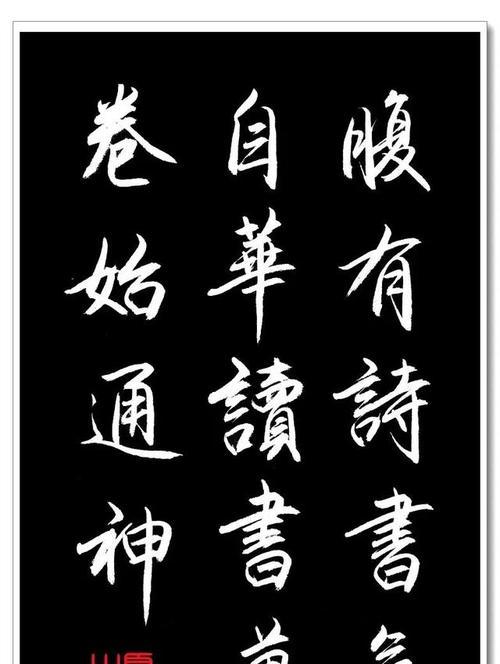 腹有詩書
自華讀書
卷始通神